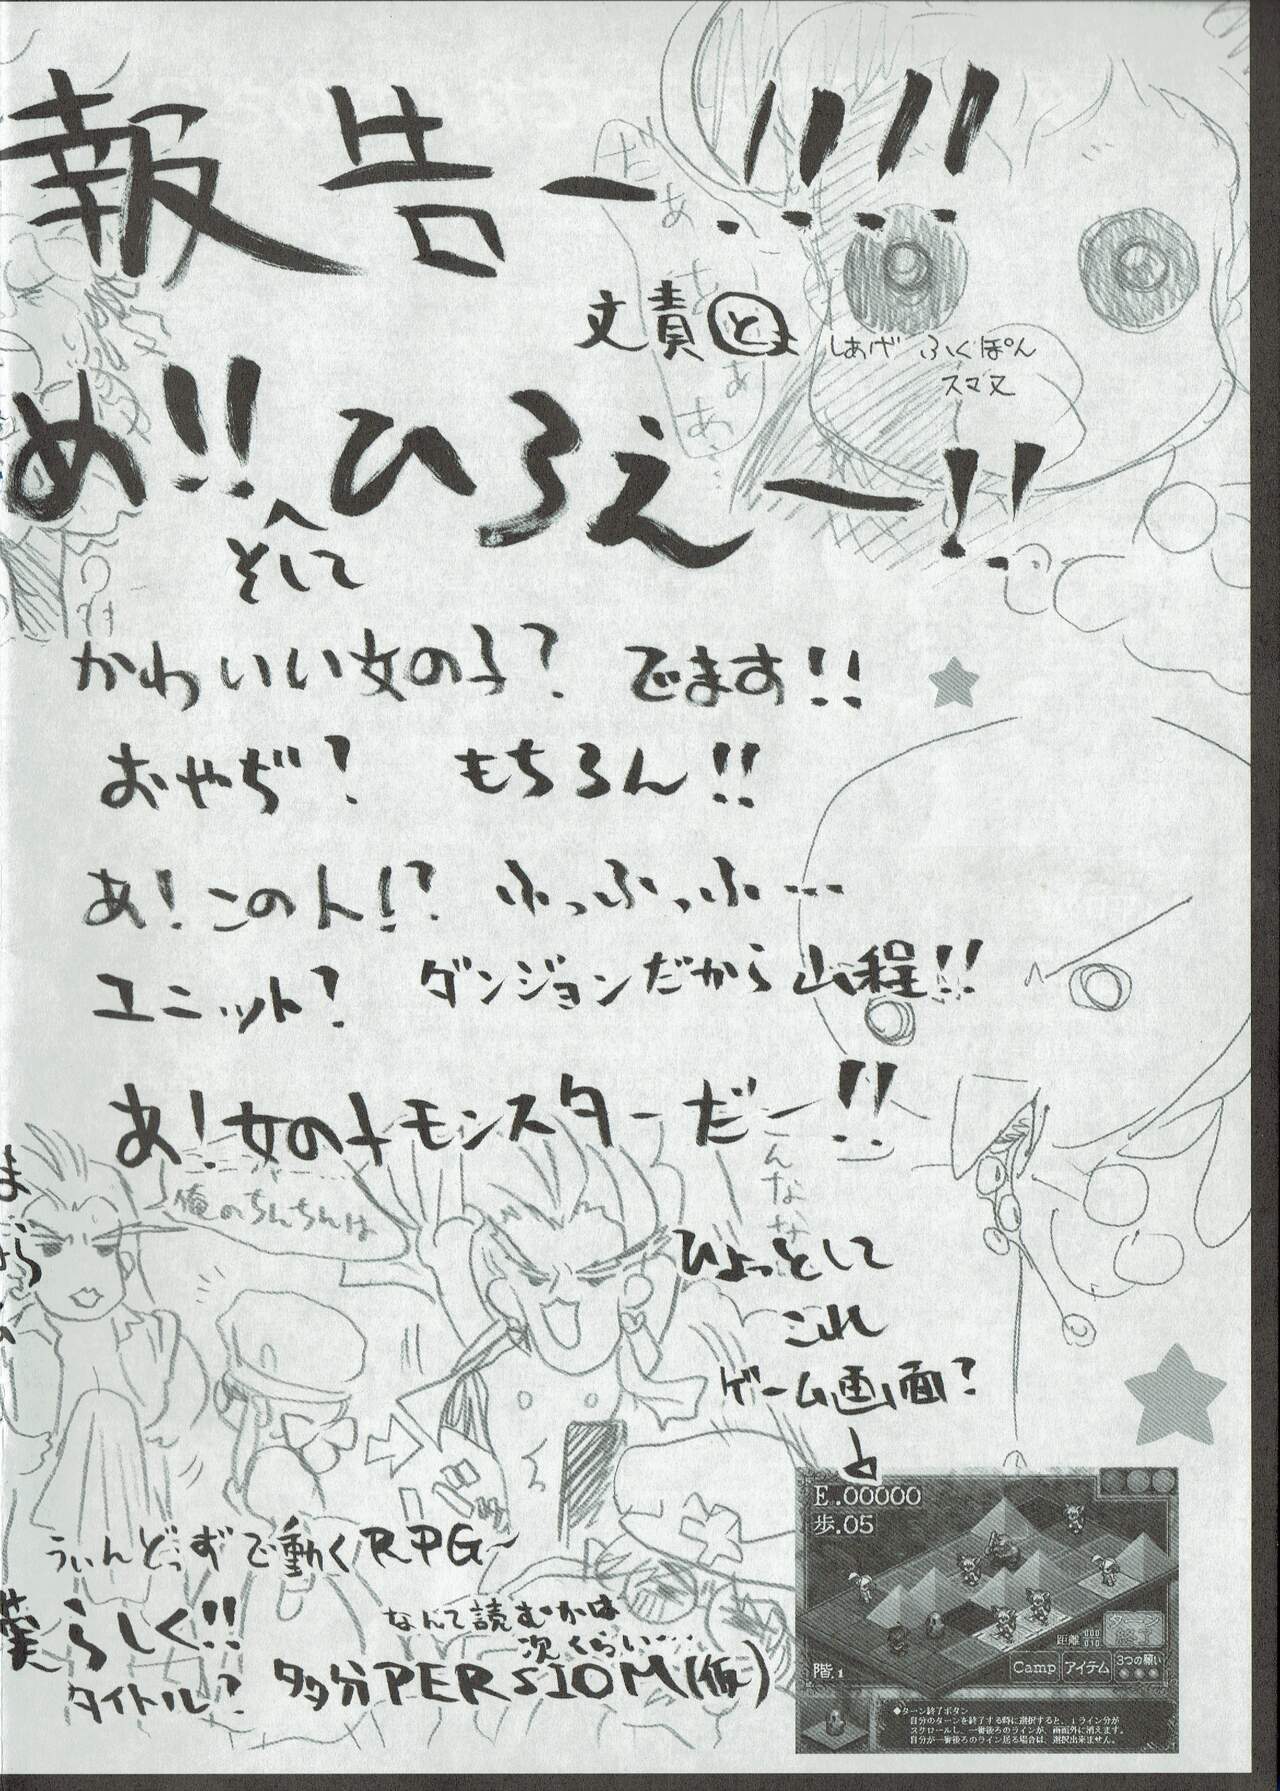 報告ー!!!!
文責と
しあげ ふくぽん
スマヌ
だぁ
め!! ひろえー!!
そして
かわいい女の子? でます!!
おやぢ? もちろん!!
あ!この人!? ふっふっふ…
ユニット? ダンジョンだから山程!!
あ!女の子モンスターだー!!
俺のちんちんは
んなな
ひょっとして
これ
ゲーム画面?
うぃんどっずで動くRPG~
らしく!!
なんて読むかは
次くらい…
タイトル? タタ分PERSIOM(仮)
E.00000
歩.05
距離 000 010
ターン終了
階.1
Camp アイテム 3つの願い
◆ターン終了ボタン
自分のターンを終了する時に選択すると、1ライン分が
スクロールし、一番後ろのラインが、画面外に消えます。
自分が一番後ろのライン居る場合は、選択出来ません。